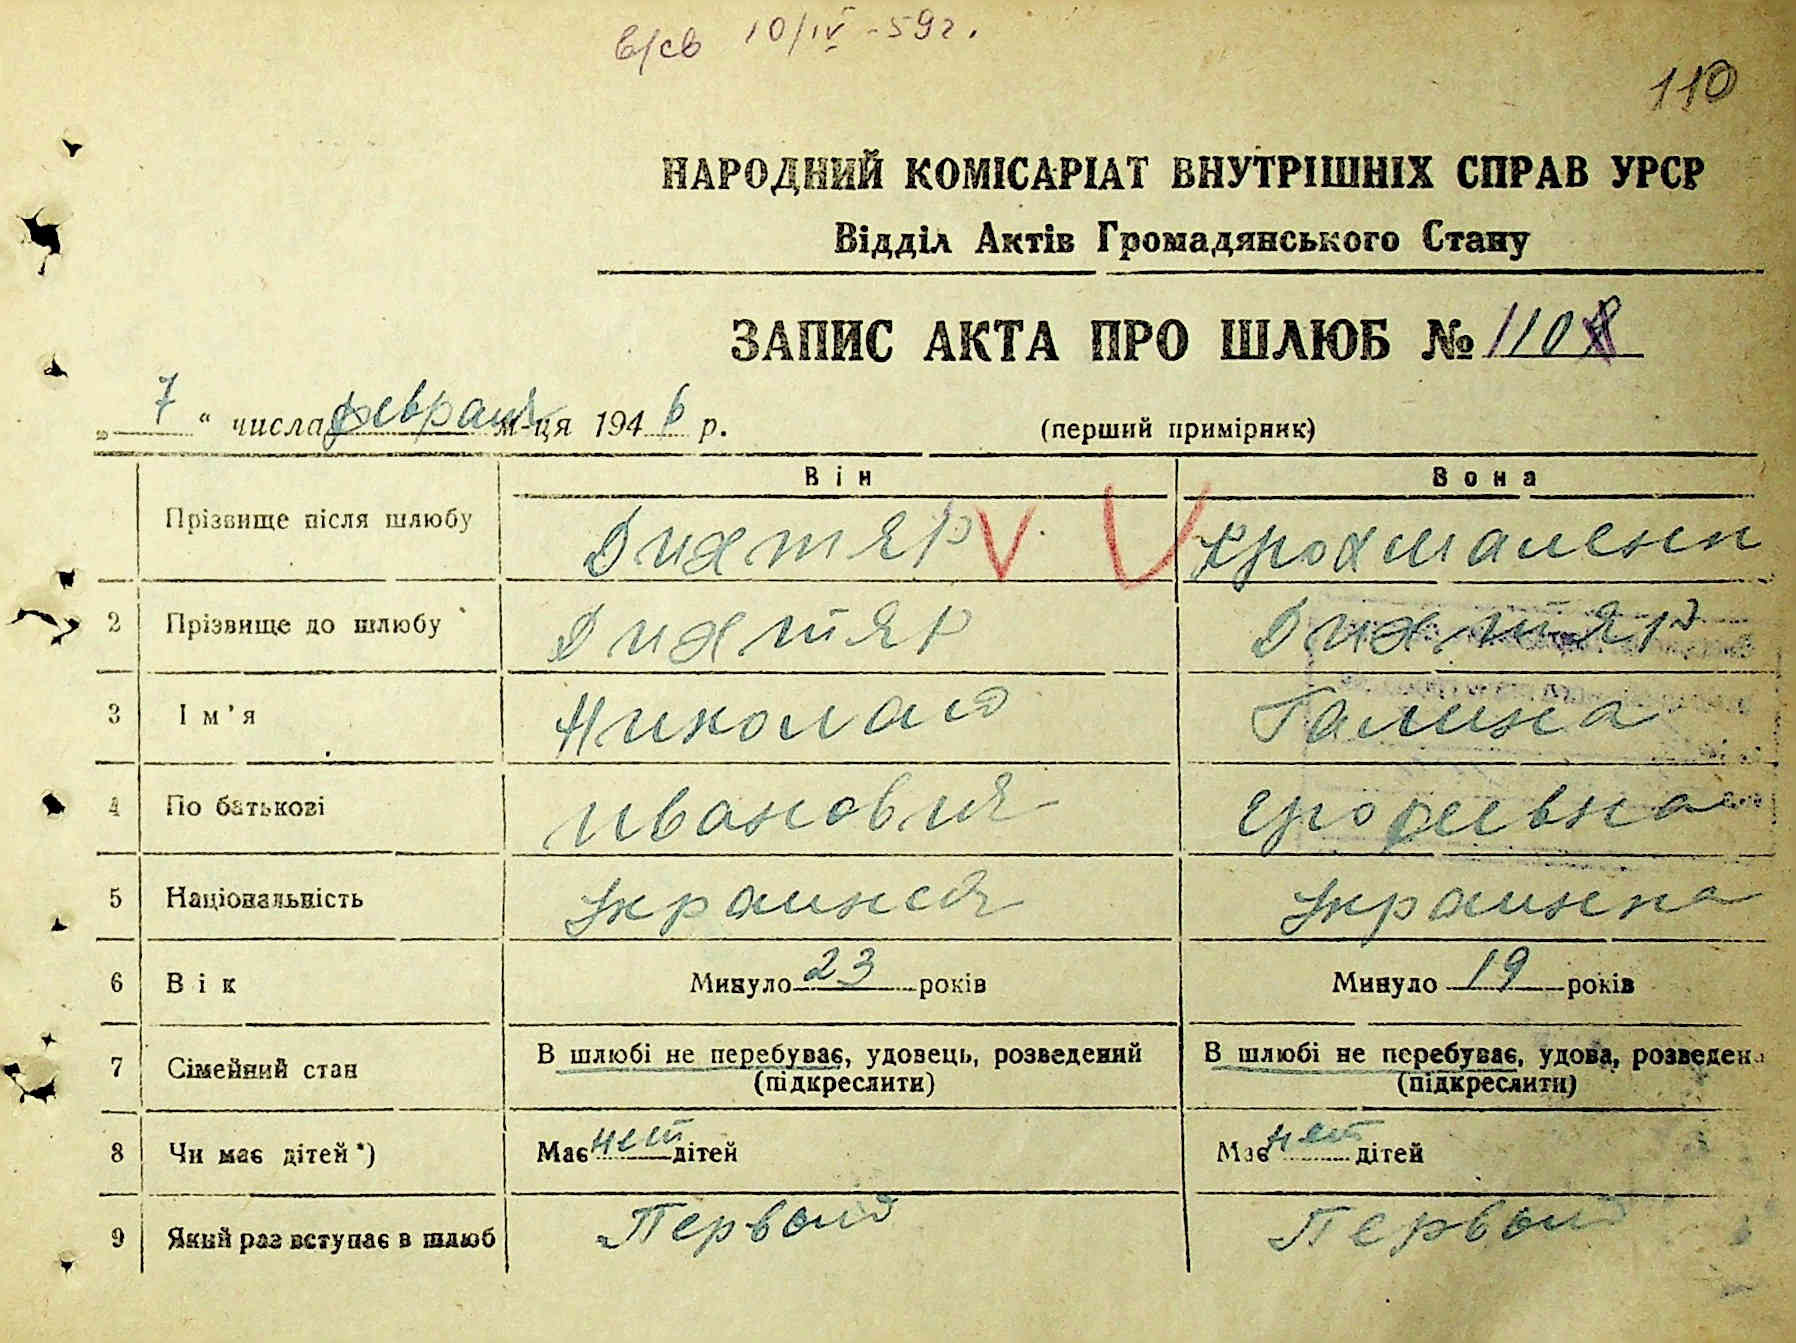 в/св 10/IV - 59г.
110
НАРОДНИЙ КОМІСАРІАТ ВНУТРІШНІХ СПРАВ УРСР
Відділ Актів Громадянського Стану
ЗАПИС АКТА ПРО ШЛЮБ № 110
„ 7 “ числа февраля м-ця 1946 р. (перший примірник)
Він Вона
Прізвище після шлюбу Дихтяр Крохмаленк
2 Прізвище до шлюбу Дихтяр Дихтяр
3 Ім'я Николай Галина
4 По батькові Иванович Ерофеевна
5 Національність Украинец Украинка
6 Вік Минуло 23 років Минуло 19 років
7 Сімейний стан В шлюбі не перебуває, удовець, розведений В шлюбі не перебуває, удова, розведена
(підкреслити) (підкреслити)
8 Чи має дітей*) Має нет дітей Має нет дітей
9 Який раз вступає в шлюб Первый Первый